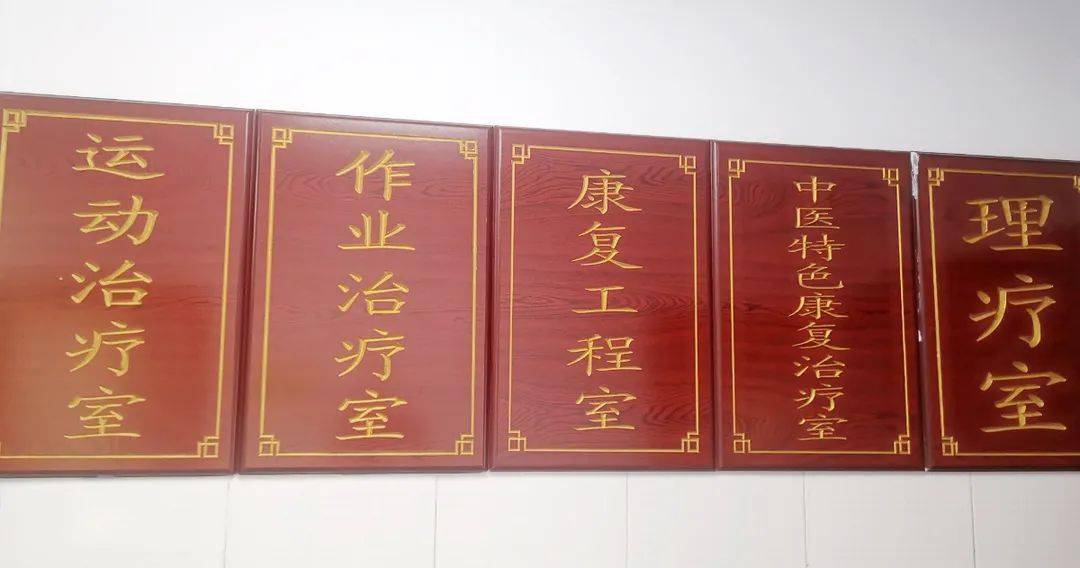 运动治疗室
作业治疗室
康复工程室
中医特色康复治疗室
理疗室